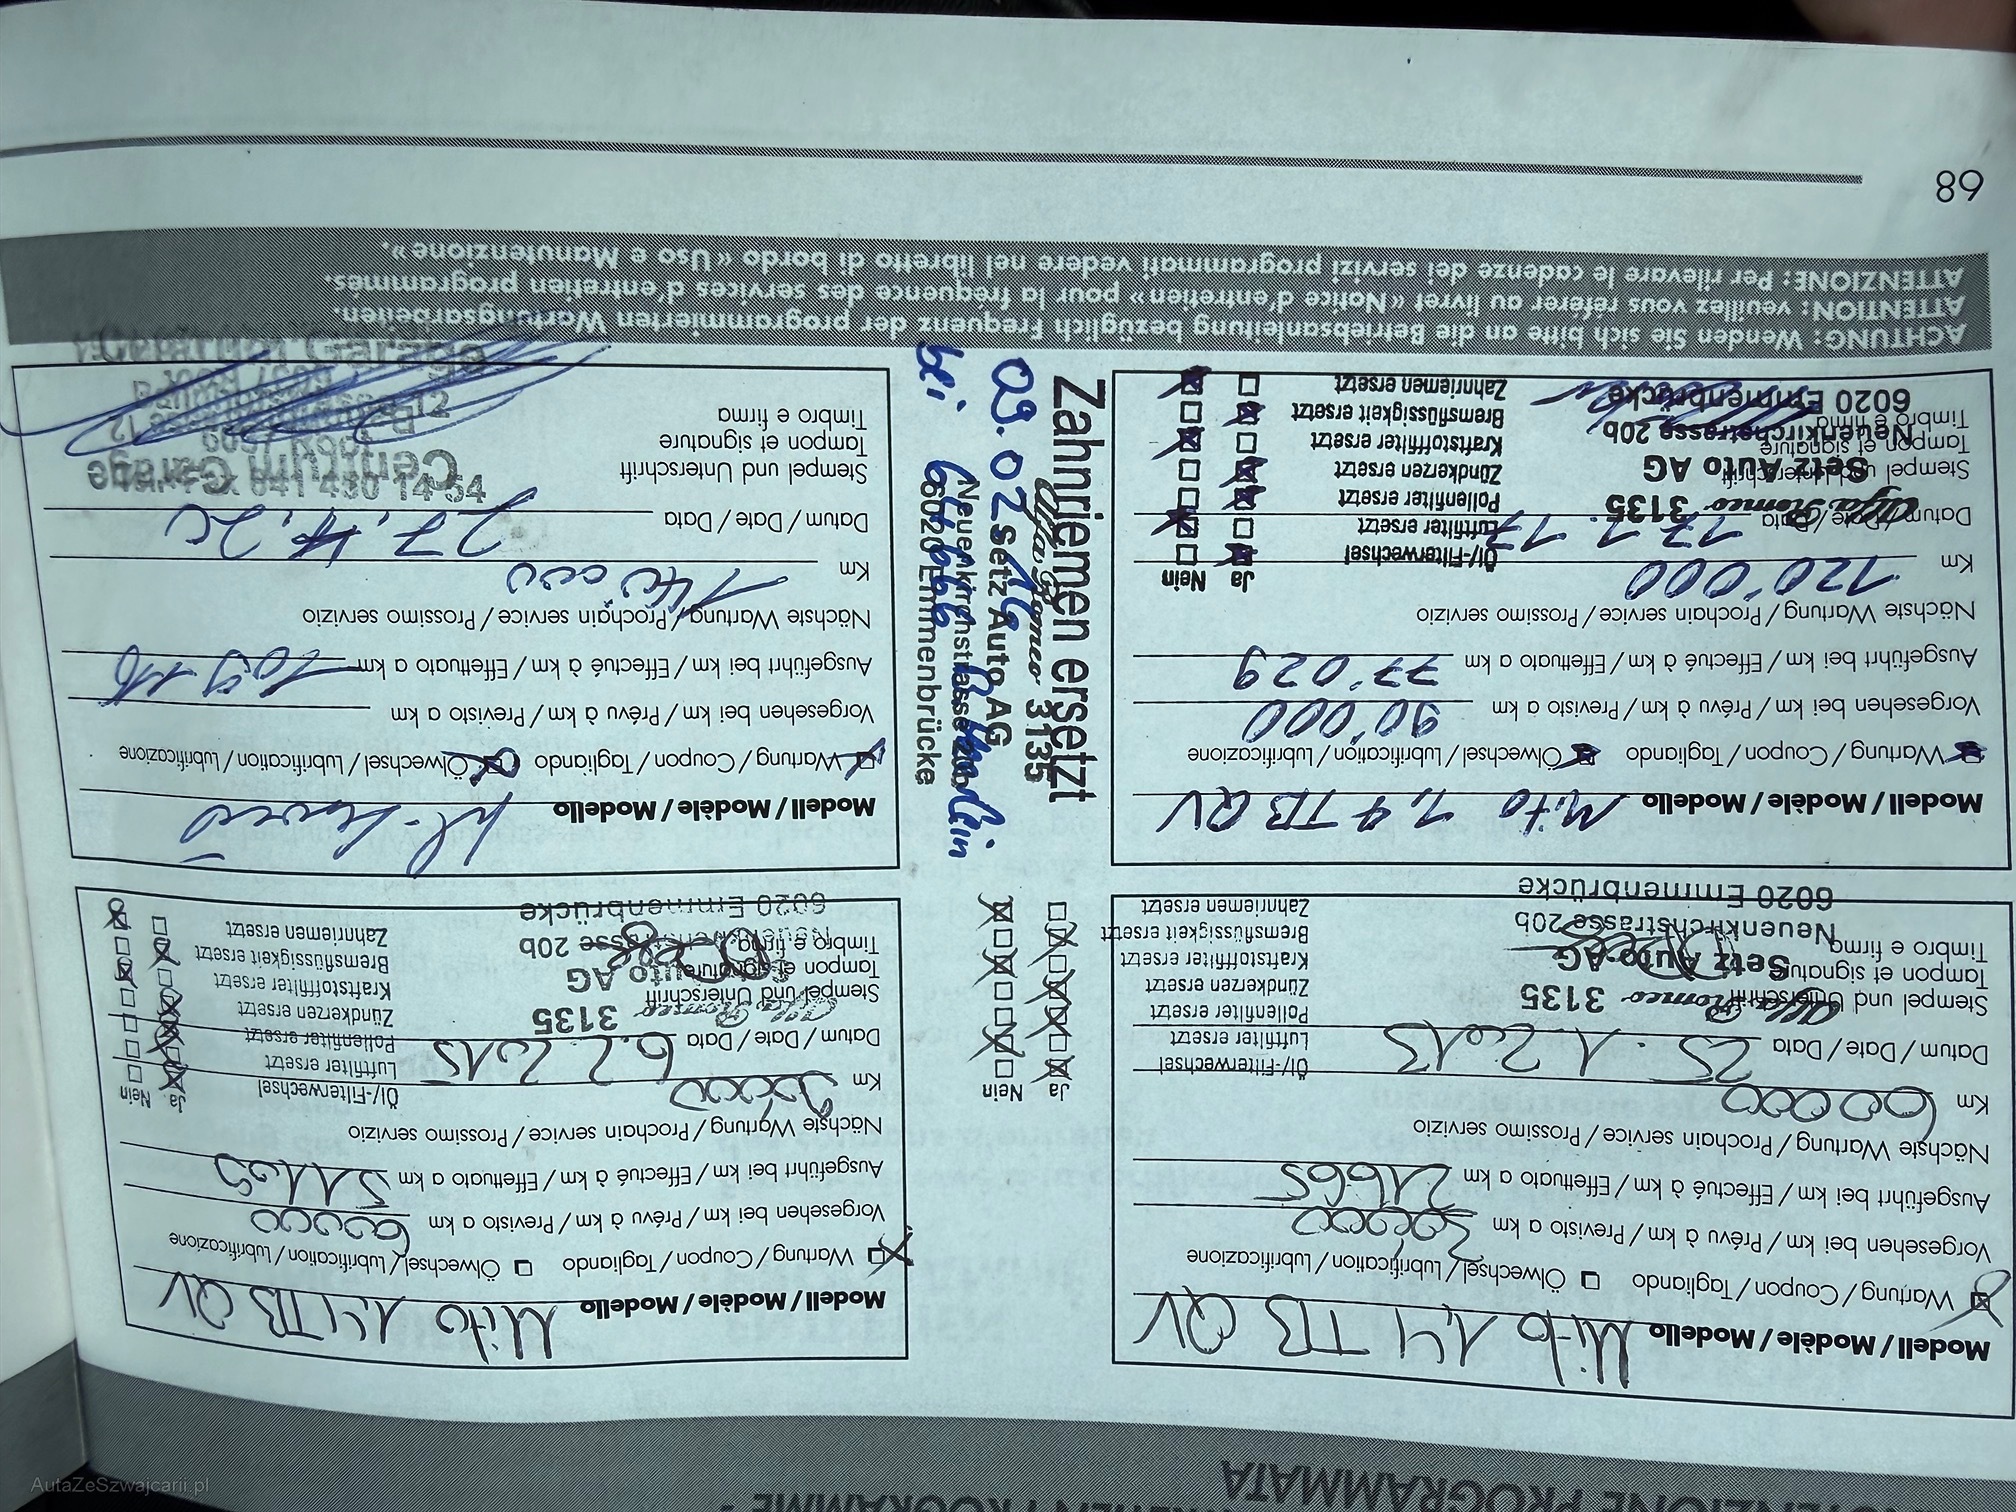 PROGRAMME -
PROGRAMMATA
Modell / Modèle / Modello Mito 1,4 TB QV
Wartung / Coupon / Tagliando Ölwechsel / Lubrification / Lubrificazione
Vorgesehen bei km / Prévu à km / Previsto a km 30'000
Ausgeführt bei km / Effectué à km / Effettuato a km 21665
Nächste Wartung / Prochain service / Prossimo servizio
Km 60000
Datum / Date / Data 25.1.2013
Stempel und Unterschrift
Tampon et signature
Timbro e firma
Alfa Romeo 3135
Setz Auto AG
Neuenkirchstrasse 20b
6020 Emmenbrücke
Ja Nein
Öl-/Filterwechsel
Luftfilter ersetzt
Pollenfilter ersetzt
Zündkerzen ersetzt
Kraftstoffilter ersetzt
Bremsflüssigkeit ersetzt
Zahnriemen ersetzt
Modell / Modèle / Modello Mito 1,4 TB QV
Wartung / Coupon / Tagliando Ölwechsel / Lubrification / Lubrificazione
Vorgesehen bei km / Prévu à km / Previsto a km 60000
Ausgeführt bei km / Effectué à km / Effettuato a km 51109
Nächste Wartung / Prochain service / Prossimo servizio
Km 90'000
Datum / Date / Data 6.2.2015
Stempel und Unterschrift
Tampon et signature
Timbro e firma
Alfa Romeo 3135
Setz Auto AG
Neuenkirchstrasse 20b
6020 Emmenbrücke
Ja Nein
Öl-/Filterwechsel
Luftfilter ersetzt
Pollenfilter ersetzt
Zündkerzen ersetzt
Kraftstoffilter ersetzt
Bremsflüssigkeit ersetzt
Zahnriemen ersetzt
Modell / Modèle / Modello Mito 1,4 TB QV
Wartung / Coupon / Tagliando Ölwechsel / Lubrification / Lubrificazione
Vorgesehen bei km / Prévu à km / Previsto a km 90'000
Ausgeführt bei km / Effectué à km / Effettuato a km 77'029
Nächste Wartung / Prochain service / Prossimo servizio
Km 120'000
Datum / Date / Data 17.1.17
Stempel und Unterschrift
Tampon et signature
Timbro e firma
Alfa Romeo 3135
Setz Auto AG
Neuenkirchstrasse 20b
6020 Emmenbrücke
Ja Nein
Öl-/Filterwechsel
Luftfilter ersetzt
Pollenfilter ersetzt
Zündkerzen ersetzt
Kraftstoffilter ersetzt
Bremsflüssigkeit ersetzt
Zahnriemen ersetzt
Zahnriemen ersetzt
Alfa Romeo 3135
Setz Auto AG
Neuenkirchstrasse 20b
6020 Emmenbrücke
09.02.
bei
Modell / Modèle / Modello
Wartung / Coupon / Tagliando Ölwechsel / Lubrification / Lubrificazione
Vorgesehen bei km / Prévu à km / Previsto a km
Ausgeführt bei km / Effectué à km / Effettuato a km
Nächste Wartung / Prochain service / Prossimo servizio
Km 140'000
Datum / Date / Data
Stempel und Unterschrift
Tampon et signature
Timbro e firma
Centrum Garage
6037 Root
ACHTUNG: Wenden Sie sich bitte an die Betriebsanleitung bezüglich Frequenz der programmierten Wartungsarbeiten.
ATTENTION: veuillez vous référer au livret « Notice d'entretien » pour la fréquence des services d'entretien programmés.
ATTENZIONE: Per rilevare le cadenze dei servizi programmati vedere nel libretto di bordo « Uso e Manutenzione ».
68
AutaZeSzwajcarii.pl